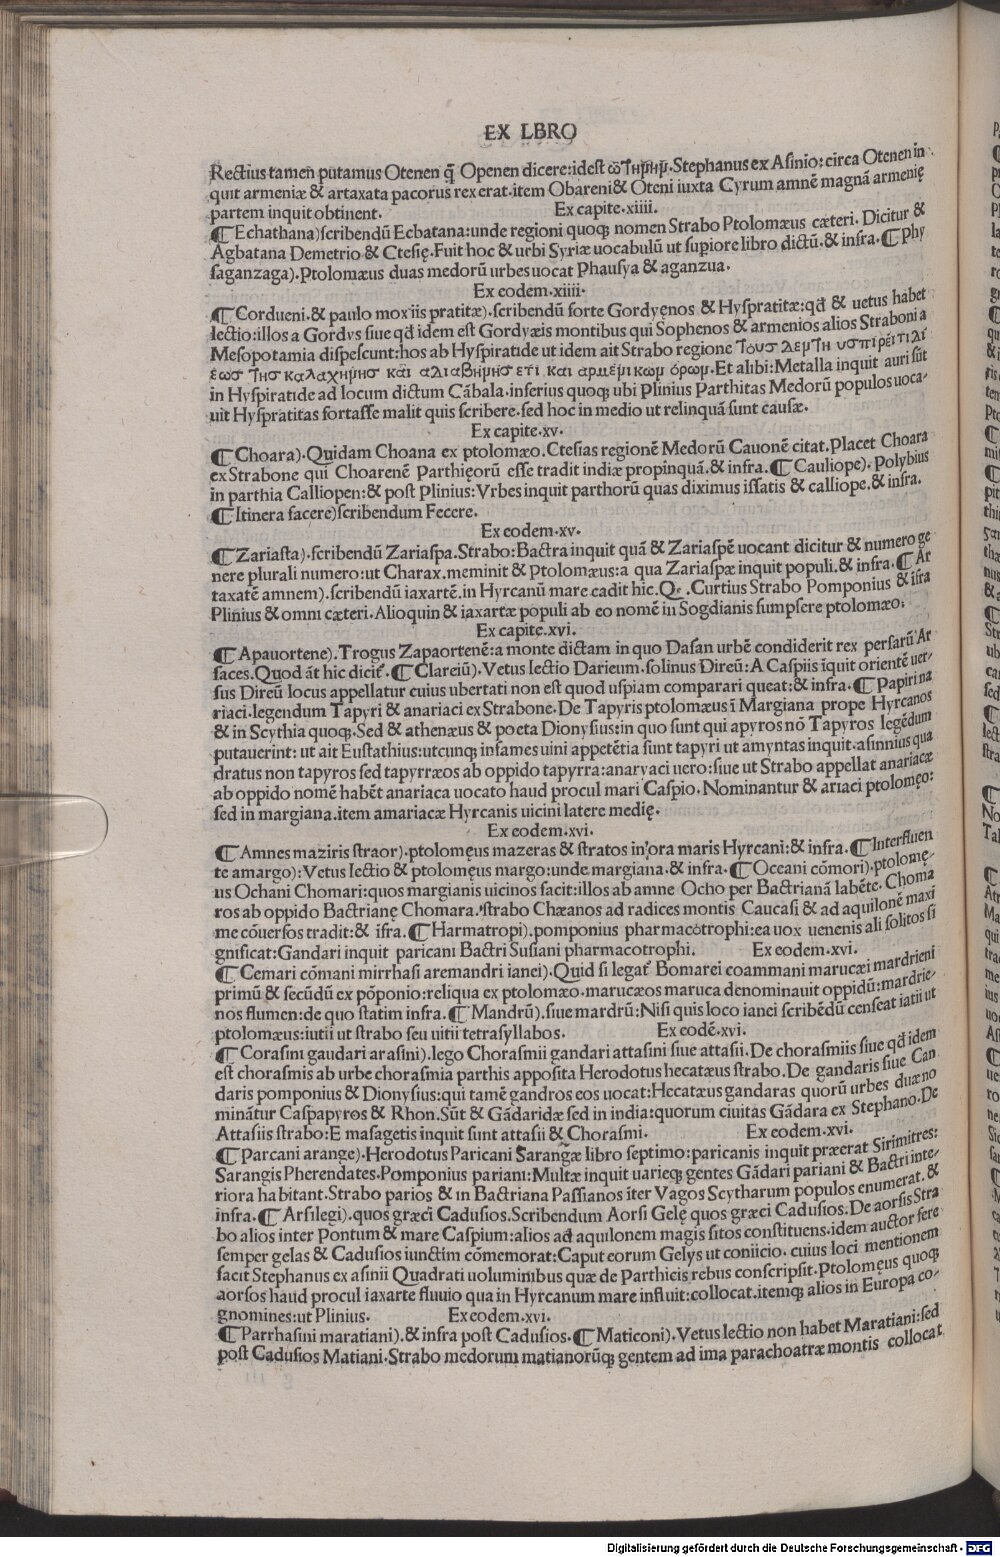 EX LBRO
Rectius tamen putamus Otenen q̄ Openen dicere:idest ὠτηνήν.Stephanus ex Asinio:circa Otenen in
quit armeniæ & artaxata pacorus rex erat.item Obareni& Oteni iuxta Cyrum amnē magnā armenię
partem inquit obtinent. Ex capite.xiiii.
¶Echathana)scribendū Ecbatana:unde regioni quoq; nomen Strabo Ptolomæus cæteri. Dicitur &
Agbatana Demetrio & Ctesię.Fuit hoc & urbi Syriæ uocabulū ut supiore libro dictū.& infra.¶Phy
saganzaga).Ptolomæus duas medorū urbes uocat Phausya & aganzua.
Ex eodem.xiiii.
¶Cordueni.& paulo mox iis pratitæ).scribendū forte Gordyenos & Hyspratitæ:qđ & uetus habet
lectio:illos a Gordys siue qđ idem est Gordyæis montibus qui Sophenos & armenios alios Straboni a
Mesopotamia dispescunt:hos ab Hyspiratide ut idem ait Strabo regione τουσ δεμτη υσπιρέιτιδί
έωσ τησ καλαχηνησ και αδιαβηνησ ετι και αρμένικων όρων.Et alibi:Metalla inquit auri sūt
in Hyspiratide ad locum dictum Cābala.inferius quoq; ubi Plinius Parthitas Medorū populos uoca-
uit Hyspratitas fortasse malit quis scribere.sed hoc in medio ut relinquā sunt causæ.
Ex capite.xv.
¶Choara).Quidam Choana ex ptolomæo.Ctesias regionē Medorū Cauonē citat.Placet Choara
ex Strabone qui Choarenē Parthięorū esse tradit indiæ propinquā.& infra.¶Cauliope).Polybius
in parthia Calliopen:& post Plinius:Vrbes inquit parthorū quas diximus issatis & calliope.& infra.
¶Itinera facere)scribendum Fecere.
Ex eodem.xv.
¶Zariasta).scribendū Zariaspa.Strabo:Bactra inquit quā & Zariaspē uocant dicitur & numero ge
nere plurali numero:ut Charax.meminit & Ptolomæus:a qua Zariaspæ inquit populi.& infra.¶Ar
taxatē amnem).scribendū iaxartē.in Hyrcanū mare cadit hic.Q .Curtius Strabo Pomponius & īfra
Plinius & omni cæteri.Alioquin & iaxartæ populi ab eo nomē in Sogdianis sumpsere ptolomæo.
Ex capite.xvi.
¶Apauortene).Trogus Zapaortenē:a monte dictam in quo Dasan urbē condiderit rex persarū Ar
saces.Quod āt hic dicit᾽.¶Clareiū).Vetus lectio Darieum.solinus Direū:A Caspiis īquit orientē uer-
sus Direū locus appellatur cuius ubertati non est quod uspiam comparari queat:& infra.¶Papiri na
riaci.legendum Tapyri & anariaci ex Strabone.De Tapyris ptolomæus ī Margiana prope Hyrcanos
& in Scythia quoq;.Sed & athenæus & poeta Dionysius:in quo sunt qui apyros nō Tapyros legēdum
putauerint: ut ait Eustathius:utcunq; infames uini appetētia sunt tapyri ut amyntas inquit.asinnius qua
dratus non tapyros sed tapyrræos ab oppido tapyrra:anaryaci uero:siue ut Strabo appellat anariacæ
ab oppido nomē habēt anariaca uocato haud procul mari Caspio.Nominantur & ariaci ptolomęo:
sed in margiana.item amariacæ Hyrcanis uicini latere medię.
Ex eodem.xvi.
¶Amnes maziris straor).ptolomęus mazeras & stratos in ora maris Hyrcani:& infra.¶Interfluen
te amargo):Vetus lectio & ptolomęus margo:unde margiana.& infra.¶Oceani cōmori).ptolomę-
us Ochani Chomari:quos margianis uicinos facit:illos ab amne Ocho per Bactrianā labēte.Choma
ros ab oppido Bactrianę Chomara.strabo Chæanos ad radices montis Caucasi & ad aquilonē maxi
me cōuersos tradit:& īfra.¶Harmatropi).pomponius pharmacotrophi:ea uox uenenis ali solitos si
gnificat:Gandari inquit paricani Bactri Susiani pharmacotrophi. Ex eodem.xvi.
¶Cemari cōmani mirrhasi aremandri ianei).Quid si legat᾽ Bomarei coammani marucæi mardrieni
primū & secūdū ex pōponio:reliqua ex ptolomæo.marucæos maruca denominauit oppidū:mardrie-
nos flumen:de quo statim infra.¶Mandrū).siue mardrū:Nisi quis loco ianei scribēdū censeat iatii ut
ptolomæus:iutii ut strabo seu uitii tetrasyllabos. Ex eodē.xvi.
¶Corasini gaudari arasini).lego Chorasmii gandari attasini siue attasii.De chorasmiis siue qđ idem
est chorasmis ab urbe chorasmia parthis apposita Herodotus hecatæus strabo.De gandaris siue Can
daris pomponius & Dionysius:qui tamē gandros eos uocat:Hecatæus gandaras quorū urbes duæ no
minātur Caspapyros & Rhon.Sūt & Gādaridæ sed in india:quorum ciuitas Gādara ex Stephano.De
Attasiis strabo:E masagetis inquit sunt attasii & Chorasmi. Ex eodem.xvi.
¶Parcani arange).Herodotus Paricani Sarangæ libro septimo:paricanis inquit præerat Sirimitres:
Sarangis Pherendates.Pomponius pariani:Multæ inquit uarieq; gentes Gādari pariani & Bactri inte-
riora habitant.Strabo parios & in Bactriana Passianos īter Vagos Scytharum populos enumerat.&
infra.¶Arsilegi).quos græci Cadusios.Scribendum Aorsi Gelę quos græci Cadusios.De aorsis Stra
bo alios inter Pontum & mare Caspium:alios ad aquilonem magis sitos constituens.idem auctor fere
semper gelas & Cadusios iunctim cōmemorat:Caput eorum Gelys ut coniicio. cuius loci mentionem
facit Stephanus ex asinii Quadrati uoluminibus quæ de Parthicis rebus conscripsit.Ptolomęus quoq;
aorsos haud procul iaxarte fluuio qua in Hyrcanum mare influit:collocat.itemq; alios in Europa co-
gnomines:ut Plinius. Ex eodem.xvi.
¶Parrhasini maratiani).& infra post Cadusios.¶Maticoni).Vetus lectio non habet Maratiani:sed
post Cadusios Matiani.Strabo medorum matianorūq; gentem ad ima parachoatræ montis collocat
Digitalisierung gefördert durch die Deutsche Forschungsgemeinschaft - DFG